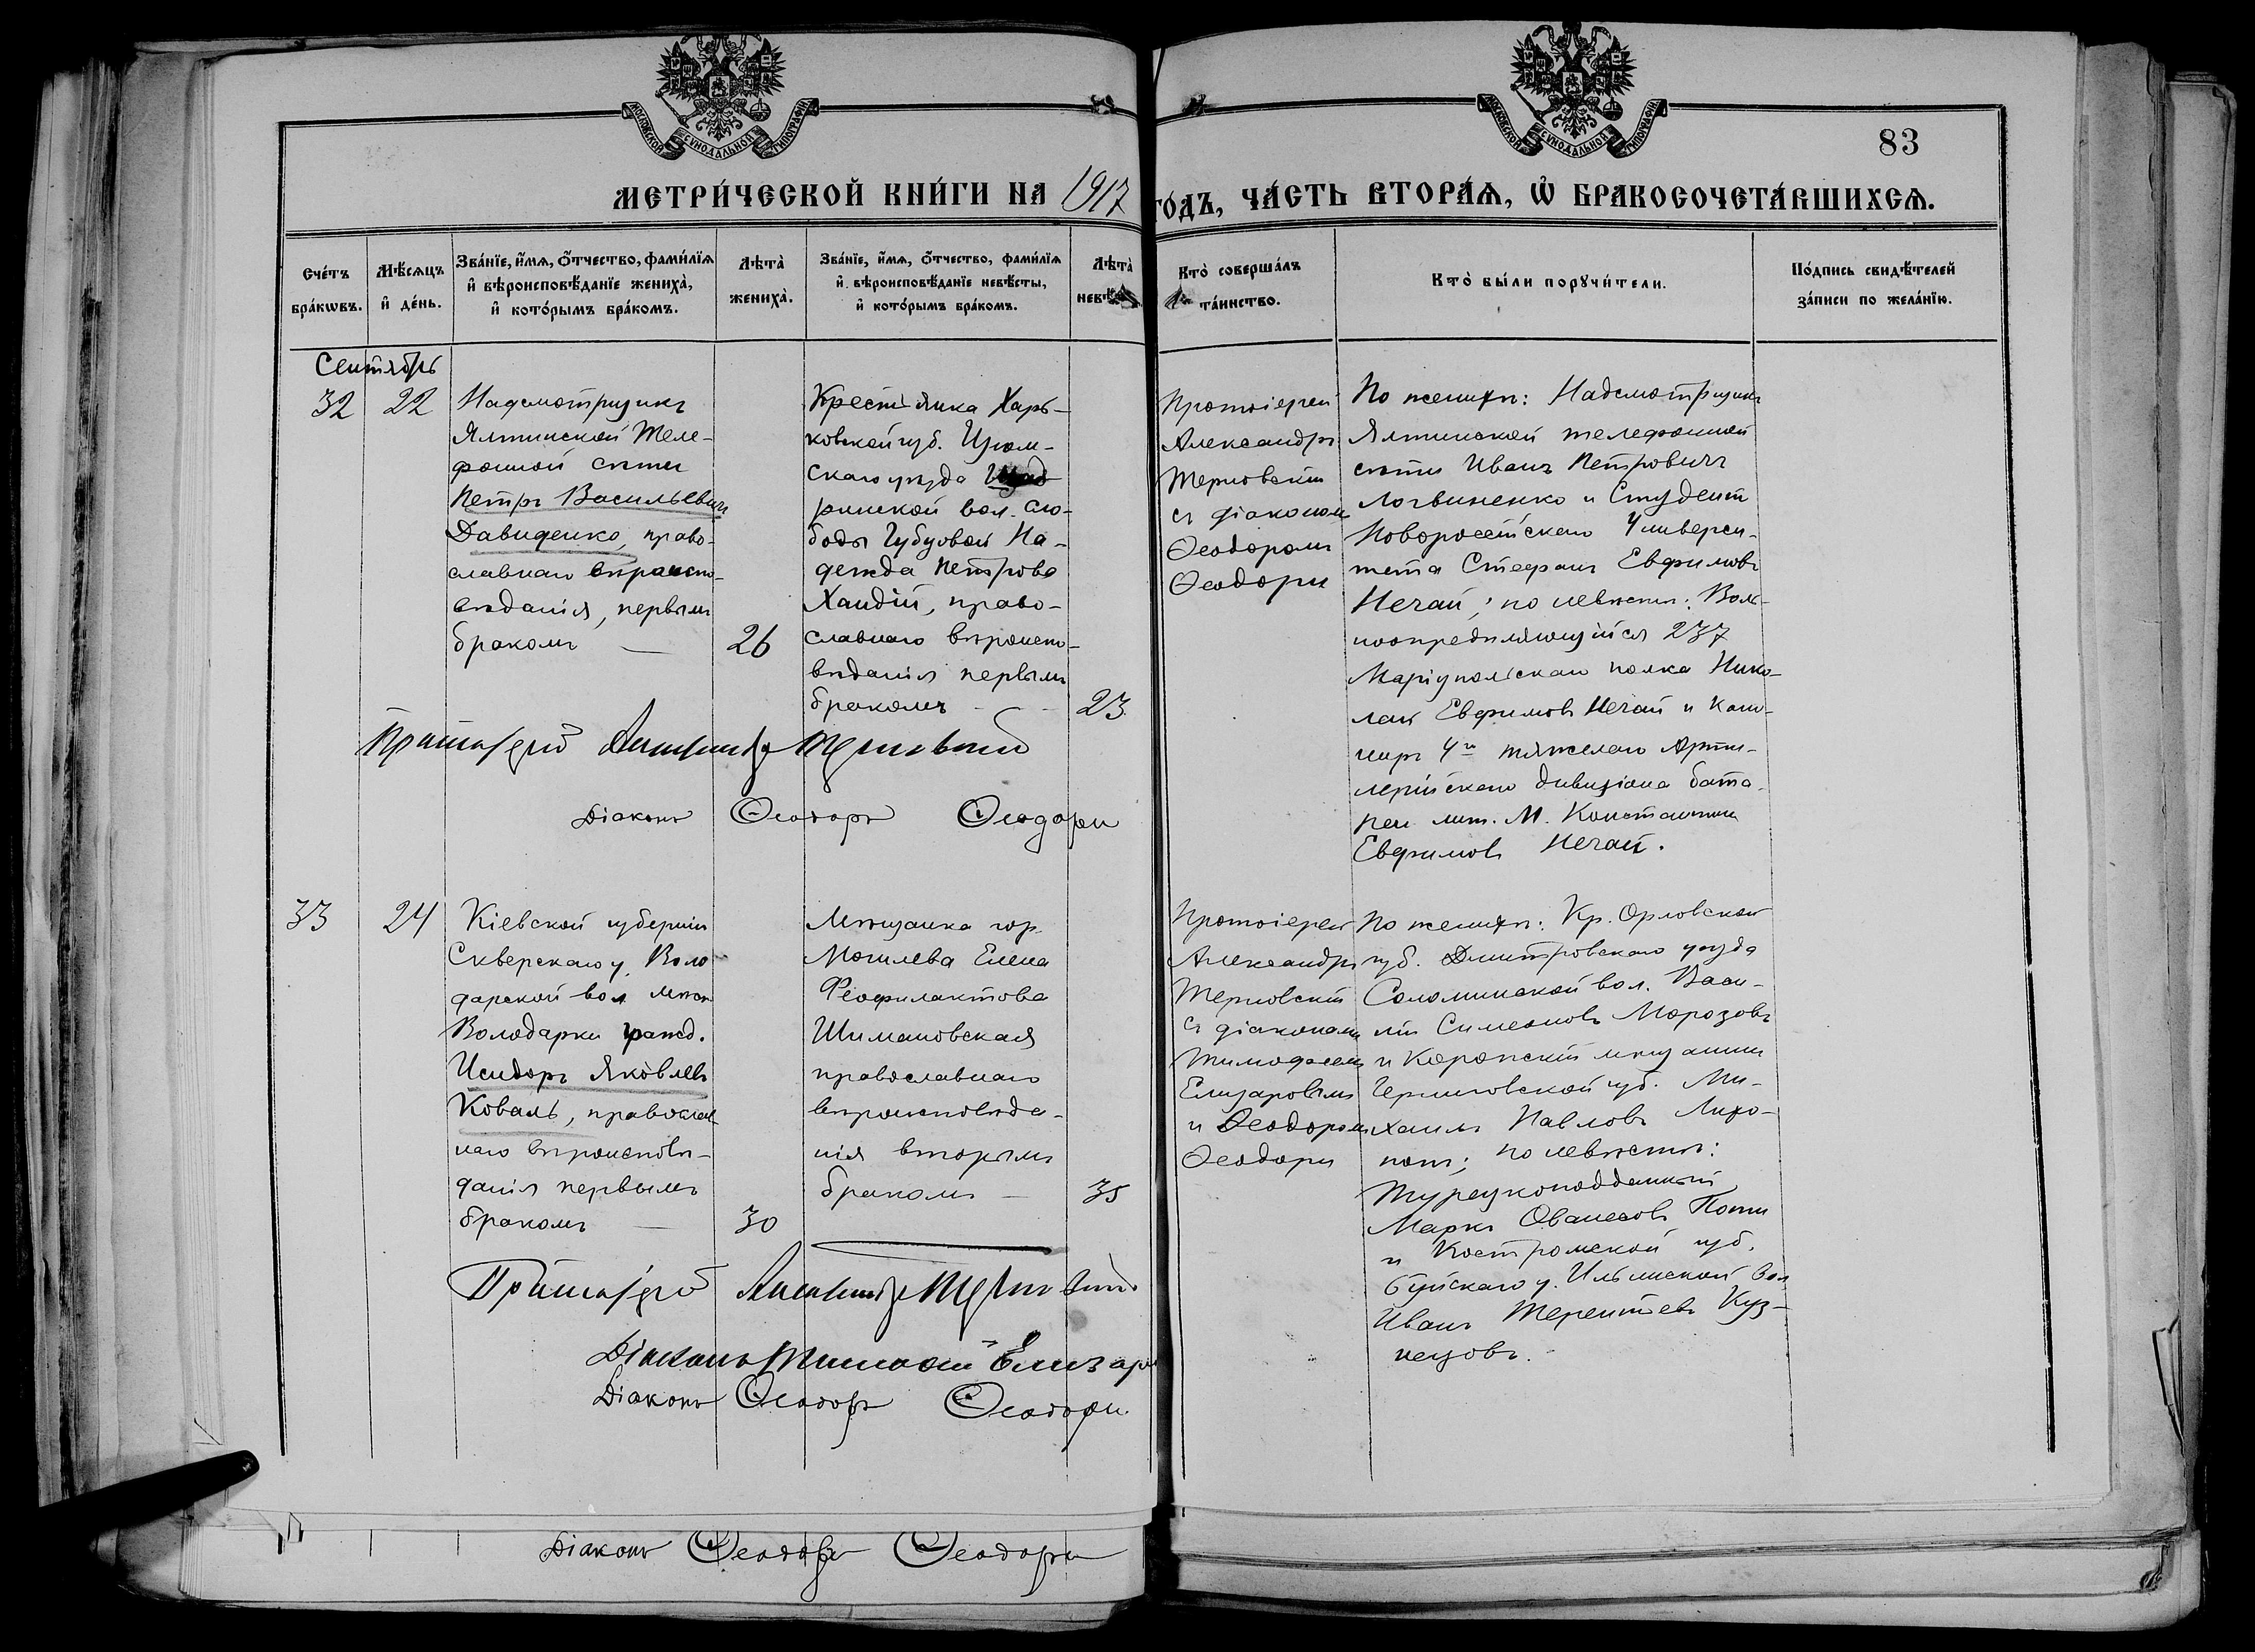 МОСКОВСКОЙ СУНОДАЛЬНОЙ ТИПОГРАФІИ
МОСКОВСКОЙ СУНОДАЛЬНОЙ ТИПОГРАФІИ
83
МЕТРИ́ЧЕСКОЙ КНИ́ГИ НА 1917
ГО́ДЪ, ЧА́СТЬ ВТОРА́Ѧ, Ѽ БРАКОСОЧЕТА́ВШИХСѦ.
Сче́тъ бра́кѡвъ.
Мѣ́сѧцъ и҆ де́нь.
Зва́нїе, и҆́мѧ, ѻ҆́тчество, фами́лїѧ и҆ вѣроисповѣ́данїе жениха̀, и҆ кото́рымъ бра́комъ.
Лѣта̀ жениха̀.
Зва́нїе, и҆́мѧ, ѻ҆́тчество, фами́лїѧ и҆ вѣроисповѣ́данїе невѣ́сты, и҆ кото́рымъ бра́комъ.
Лѣта̀
Кто̀ соверша́лъ та́инство.
Кто̀ бы́ли порꙋчи́тели.
По́дпись свидѣ́телей за́писи по жела́нїю.
Сентябрь
32
22
Надсмотрщикъ
Ялтинской Теле-
фонной сѣти
Петръ Васильевичъ
Давиденко, право-
славнаго вѣроиспо-
вѣданія, первымъ
бракомъ —
26
Крестьянка Харь-
ковской губ. Изюм-
скаго уѣзда
ринской вол. сло-
боды Губ
На-
дежда Петрова
Хандій, право-
славнаго вѣроиспо-
вѣданія первымъ
бракомъ -
23
Протоіерей
Александръ
Терновскій
съ діакономъ
Ѳеодоромъ
Ѳеодори
По женихѣ: Надсмотрщикъ
Ялтинской телефонной
сѣти Иванъ Петровичъ
Логвиненко и Студентъ
Новороссійскаго Универси-
тета Стефанъ Евфимовъ
Нечай; по невѣстѣ: Воль-
ноопредѣляющійся 237
Маріупольскаго полка Нико-
лай Евфимовъ Нечай и
4го тяжелаго Арти-
лерійскаго дивизіона бата-
реи лит. М. Константинъ
Евфимовъ Нечай.
Протоіерей Александръ Терновскій
Діаконъ Ѳеодоръ Ѳеодори
33
24
Кіевской губерніи
Сквирскаго у. Воло-
дарской вол. мѣст.
Володарки гражд.
Исидоръ Яковлевъ
Коваль, православ-
наго вѣроисповѣ-
данія первымъ
бракомъ —
30
Мѣщанка гор.
Могилева Елена
Феофилактова
Шимановская
православнаго
вѣроисповѣда-
нія вторымъ
бракомъ —
35
Протоіерей
Александръ
Терновскій
съ діаконами
Тимофеемъ
Елизаровымъ
и Ѳеодоромъ
Ѳеодори
По женихѣ: Кр. Орловской
губ. Дмитровскаго уѣзда
Соломинской вол. Васи-
лій Симеоновъ Морозовъ
и Коропскій мѣщанинъ
Черниговской губ. Ми-
хаилъ Павловъ Лихо-
по невѣстѣ:
Турецкоподданный
Маркъ Ованесовъ
и Костромской губ.
Буйскаго у. Ильинской вол
Иванъ Терентьевъ Куз-
нецовъ.
Протоіерей Александръ Терновскій
Діаконъ Тимофей Елизаро
Діаконъ Ѳеодоръ Ѳеодори.
Діаконъ Ѳеодоръ Ѳеодори